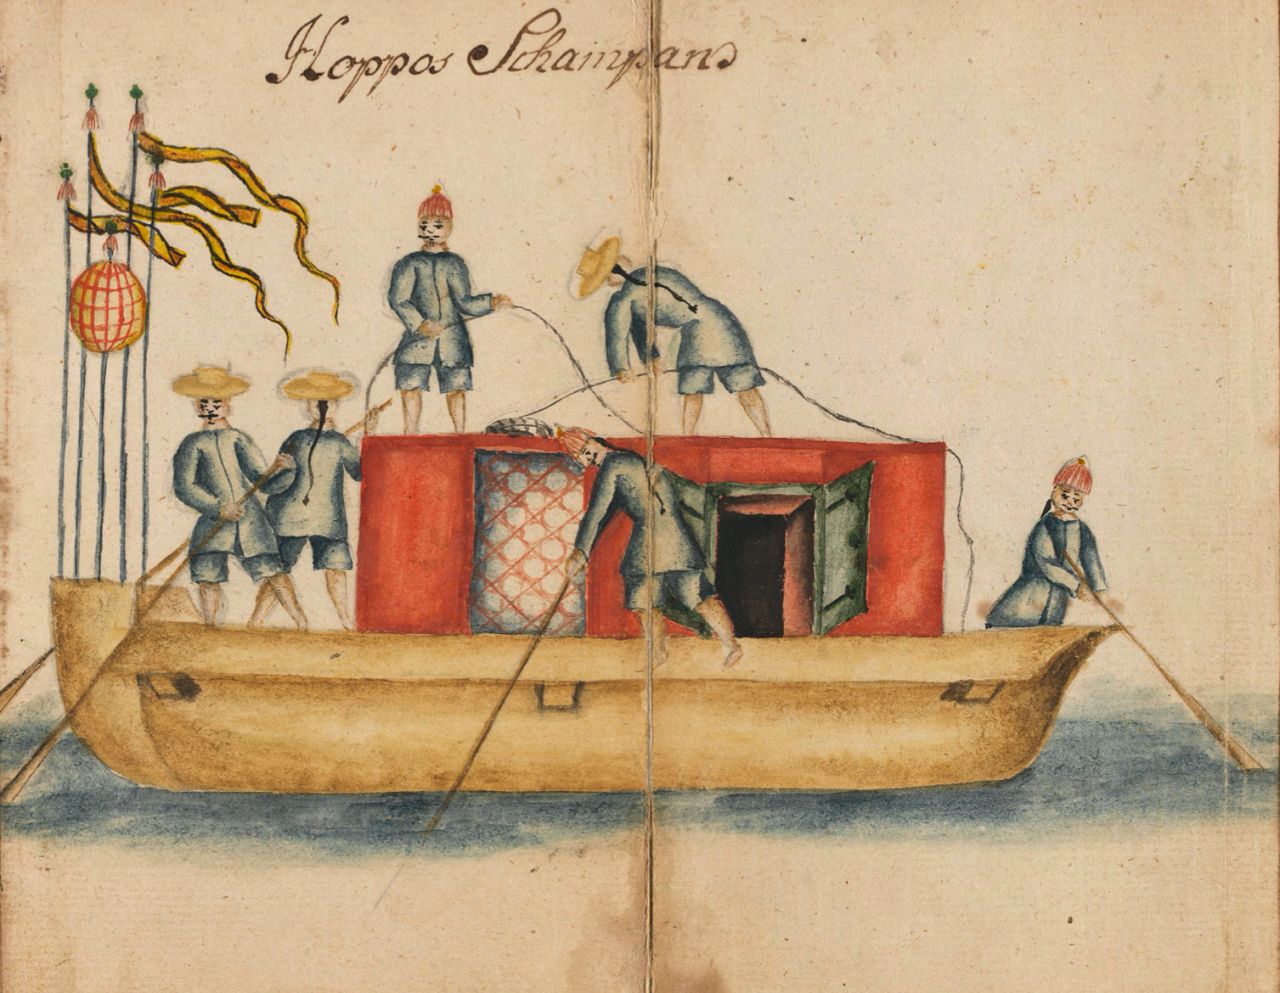 Hoppos Schampans